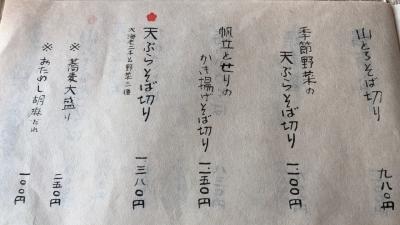 山とろそば切り
九八〇円
季節野菜の
天ぷらそば切り
一一〇〇円
帆立とせりの
かき揚げそば切り
一二五〇円
天ぷらそば切り
大海老二本と野菜二種
一三八〇円
※ 蕎麦大盛り
二五〇円
※ おためし胡麻だれ
一〇〇円